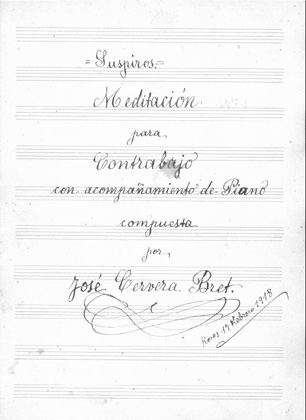 =Suspiros.=
Meditación
para
Contrabajo
con acompañamiento de Piano
compuesta
por
José Cervera Bret.
Febrero 1918